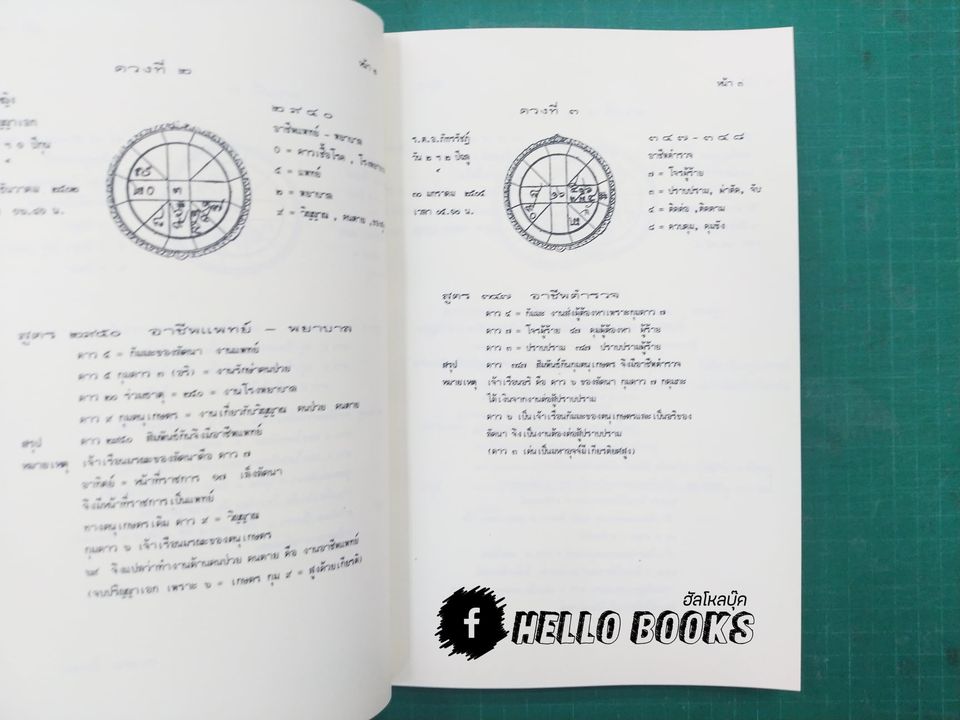 ดวงที่ ๒
๒๙๕๐
อาชีพแพทย์ - พยาบาล
๐ = ดาวเชื้อโรค , โรงพยาบาล
๕ = แพทย์
๒ = พยาบาล
๙ = วิญญาณ , คนตาย
สูตร ๒๙๕๐ อาชีพแพทย์ - พยาบาล
ดาว ๕ = กัมมะของลัคนา งานแพทย์
ดาว ๕ กุมดาว ๓ (อริ) = งานรักษาคนป่วย
ดาว ๒๐ ร่วมธาตุ = ๒๕๐ = งานโรงพยาบาล
ดาว ๙ กุมตนุเกษตร = งานเกี่ยวกับวิญญาณ คนป่วย คนตาย
สรุป ดาว ๒๙๕๐ สัมพันธ์กันจึงมีอาชีพแพทย์
หมายเหตุ เจ้าเรือนมรณะของลัคนาคือ ดาว ๗
อาทิตย์ = หน้าที่ราชการ ๑๗ เล็งลัคนา
จึงมีหน้าที่ราชการเป็นแพทย์
ทางตนุเกษตรเดิม ดาว ๙ = วิญญาณ
กุมดาว ๖ เจ้าเรือนมรณะของตนุเกษตร
๖๙ จึงแปลว่าทำงานด้านคนป่วย คนตาย คือ งานอาชีพแพทย์
(จบปริญญาเอก เพราะ ๖ = เกษตร กุม ๙ = สูงด้วยเกียรติ)
หน้า ๓
ดวงที่ ๓
ร.ต.อ.ภัทรวัชฎ์
๓๐ มกราคม
เวลา
๓๔๗-๓๔๘
อาชีพตำรวจ
๗ = โจรผู้ร้าย
๓ = ปราบปราม, ผ่าตัด, จับ
๔ = ติดต่อ ,ติดตาม
๘ = ควบคุม, คุมขัง
สูตร ๓๔๗ อาชีพตำรวจ
ดาว ๔ = กัมมะ งานส่งผู้ต้องหาเพราะกุมดาว ๗
ดาว ๗ = โจรผู้ร้าย ๔๗ คุมผู้ต้องหา ผู้ร้าย
ดาว ๓ = ปราบปราม ๓๔๗ ปราบปรามผู้ร้าย
สรุป ดาว ๓๔๗ สัมพันธ์กันกุมตนุเกษตร จึงมีอาชีพตำรวจ
หมายเหตุ เจ้าเรือนอริ คือ ดาว ๖ ของลัคนา กุมดาว ๗ กดุมภะ
ได้เงินจากงานต่อสู้ปราบปราม
ดาว ๖ เป็นเจ้าเรือนกัมมะของตนุเกษตรและเป็นอริของ
ลัคนา จึงเป็นงานต้องต่อสู้ปราบปราม
(ดาว ๓ เด่นเป็นมหาอุจจ์มีเกียรติยศสูง)
ฮัลโหลบุ๊ค
f HELLO BOOKS